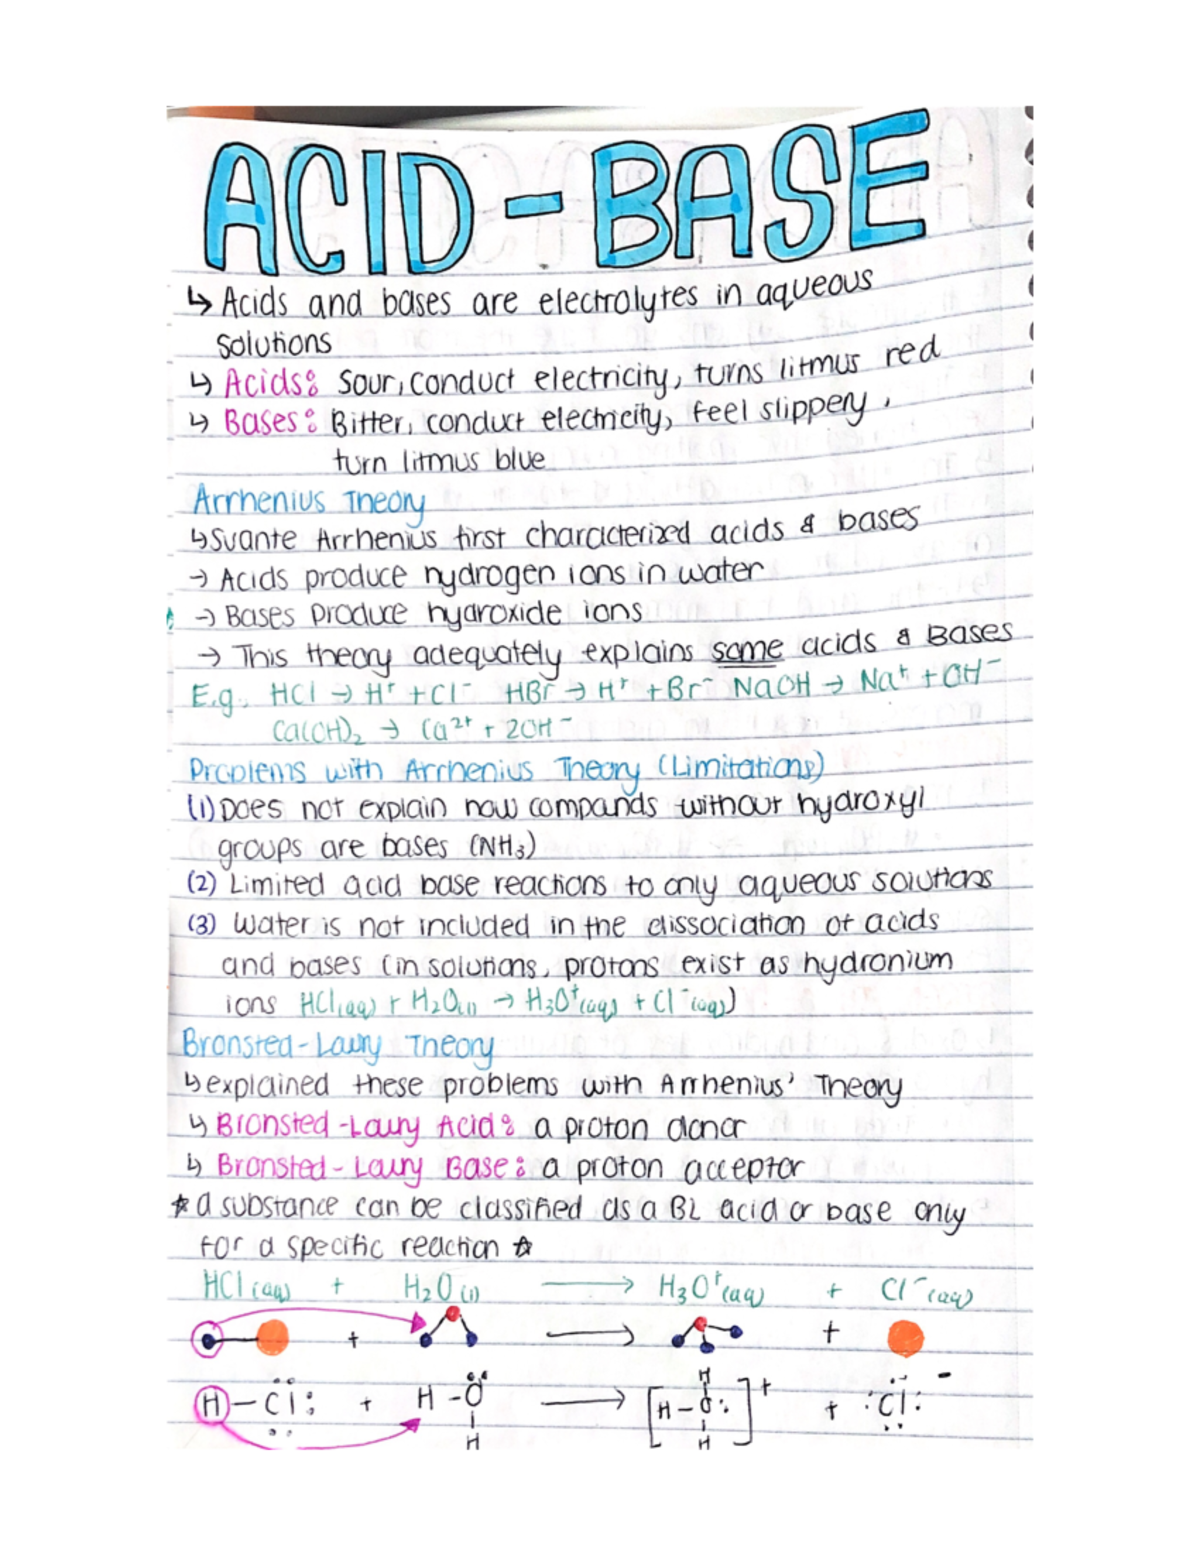 ACID-BASE
↳ Acids and bases are electrolytes in aqueous
solutions
↳ Acids: Sour, conduct electricity, turns litmus red
↳ Bases: Bitter, conduct electricity, feel slippery,
turn litmus blue
Arrhenius Theory
↳ Svante Arrhenius first characterized acids & bases
→ Acids produce hydrogen ions in water
→ Bases produce hydroxide ions
→ This theory adequately explains some acids & Bases
E.g. HCl → H⁺ + Cl⁻ HBr → H⁺ + Br⁻ NaOH → Na⁺ + OH⁻
Ca(OH)₂ → Ca²⁺ + 2OH⁻
Problems with Arrhenius Theory (Limitations)
(1) Does not explain how compounds without hydroxyl
groups are bases (NH₃)
(2) Limited acid base reactions to only aqueous solutions
(3) Water is not included in the dissociation of acids
and bases (in solutions, protons exist as hydronium
ions HCl(aq) + H₂O(l) → H₃O⁺(aq) + Cl⁻(aq))
Bronsted-Lowry Theory
↳ explained these problems with Arrhenius' Theory
↳ Bronsted-Lowry Acid: a proton donor
↳ Bronsted-Lowry Base: a proton acceptor
☆ a substance can be classified as a BL acid or base only
for a specific reaction ☆
HCl(aq) + H₂O(l) → H₃O⁺(aq) + Cl⁻(aq)
+ → +
H
H – Cl: + H – O → [H – O:]⁺ + :Cl:⁻
H H